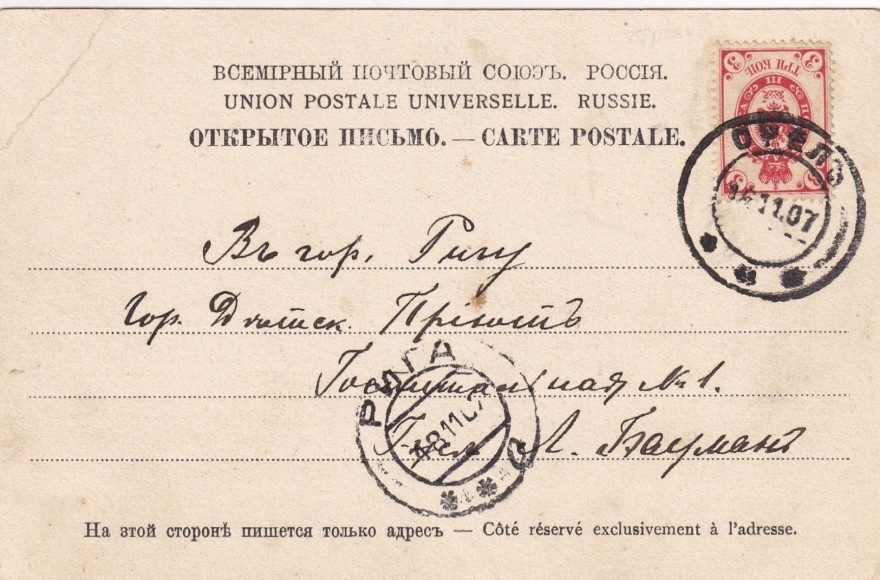 ВСЕМІРНЫЙ ПОЧТОВЫЙ СОЮЗЪ. РОССІЯ.
UNION POSTALE UNIVERSELLE. RUSSIE.
ОТКРЫТОЕ ПИСЬМО. — CARTE POSTALE.
3 ТРИ КОП. 3
ОРЕЛЪ
11.07
Въ гор. Ригу
Гор. Дѣтск. Пріютъ
Госпитальная №1.
Л. Бауманъ
РИГА
18.11.07
На этой сторонѣ пишется только адресъ — Côté réservé exclusivement à l'adresse.